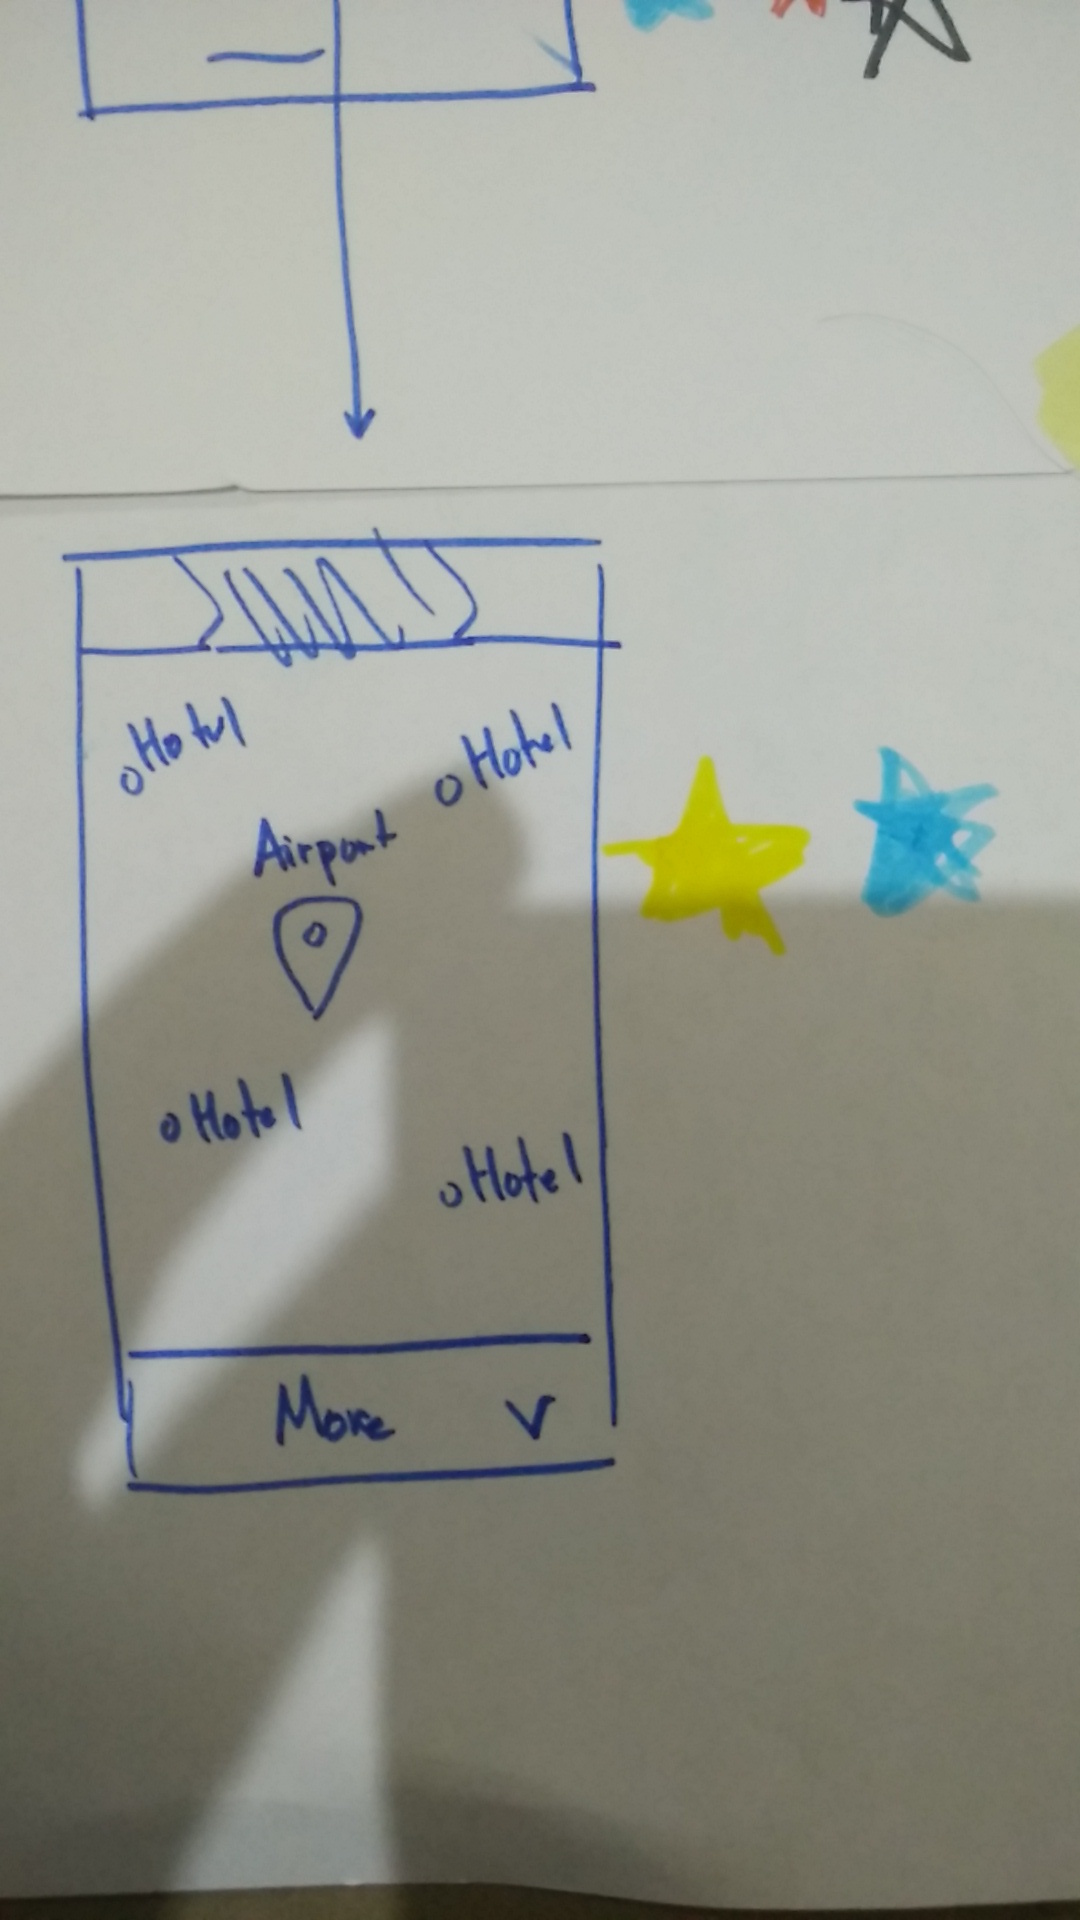 Hotel
Hotel
Airport
Hotel
Hotel
More